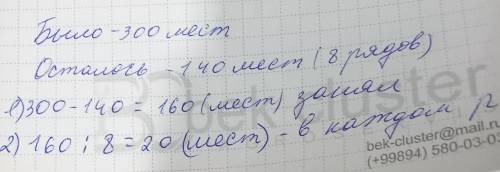 Было - 300 мест
Осталось - 140 мест (8 рядов)
1) 300 - 140 = 160 (мест) занял
2) 160 : 8 = 20 (мест) - в каждом р
bek-cluster
bek-cluster@mail.ru
(+99894) 580-03-03